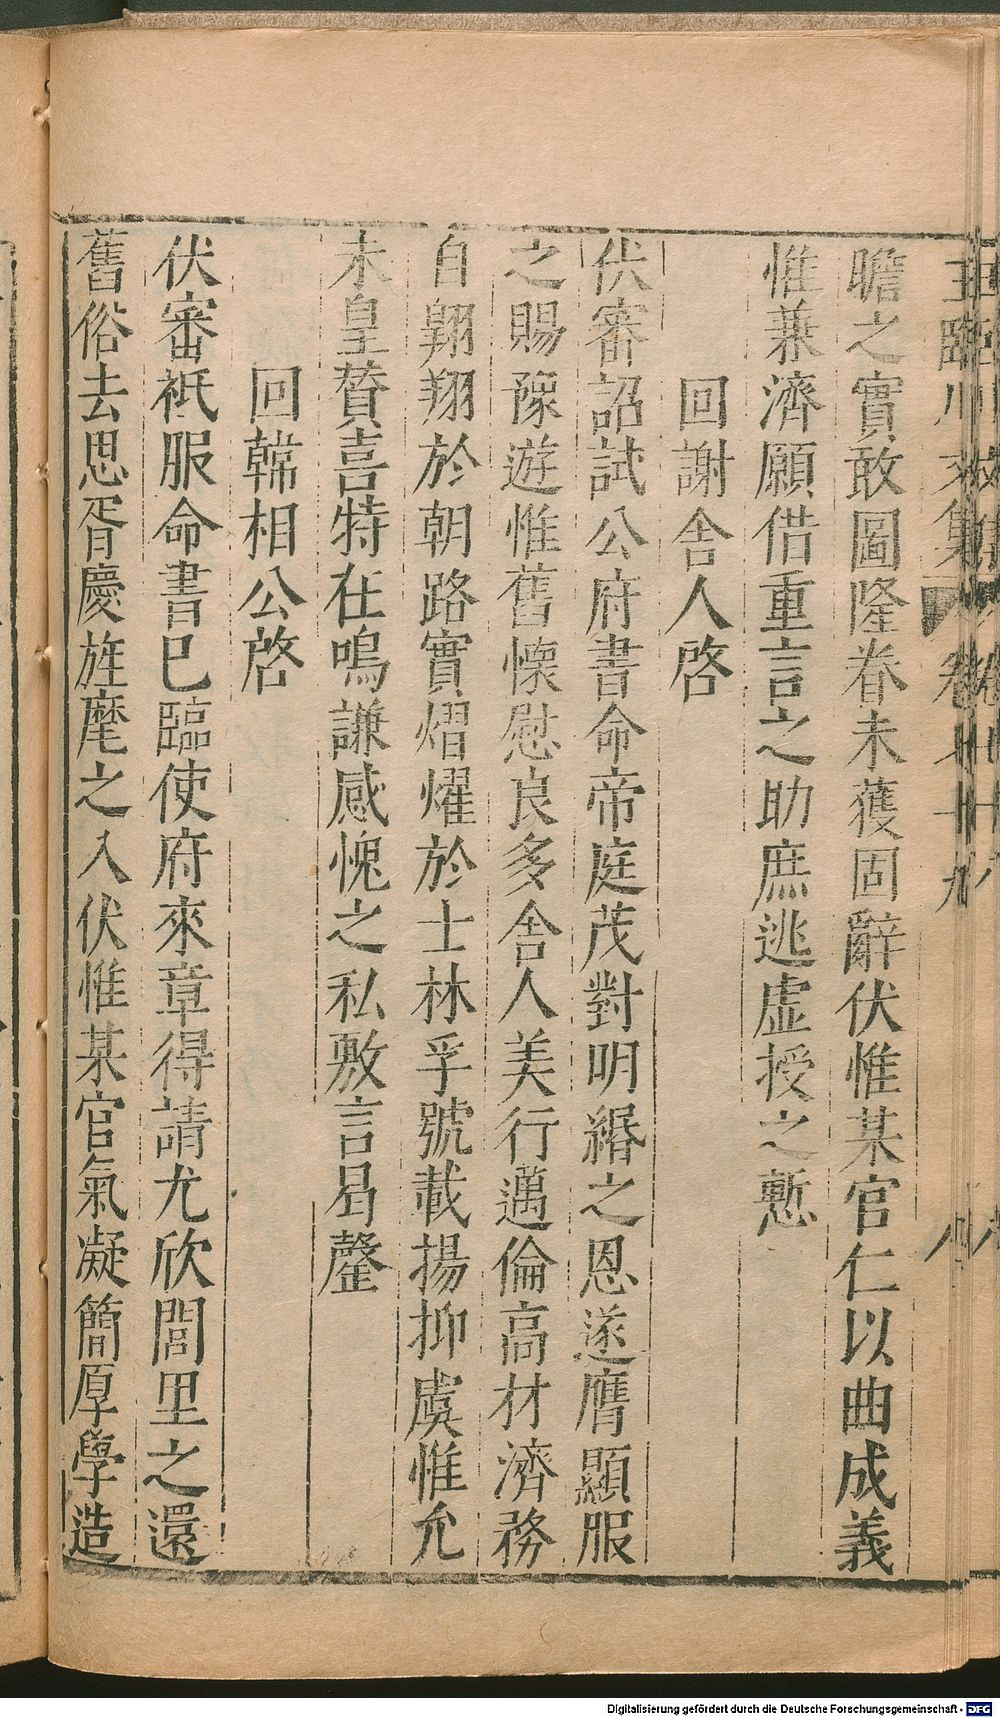 王臨川文集 卷七十九 八
瞻之實敢圖隆眷未獲固辭伏惟某官仁以曲成義
惟兼濟願借重言之助庶逃虛授之慙
回謝舍人啓
伏審詔試公府書命帝庭茂對明緡之恩遂膺顯服
之賜豫遊惟舊懷慰良多舍人美行邁倫高材濟務
自翱翔於朝路實熠燿於士林孚號載揚抑虞惟允
未皇賛喜特在鳴謙感愧之私敷言曷罄
回韓相公啓
伏審祇服命書已臨使府來章得請尤欣閭里之還
舊俗去思胥慶旌麾之入伏惟某官氣凝簡厚學造
Digitalisierung gefördert durch die Deutsche Forschungsgemeinschaft - DFG